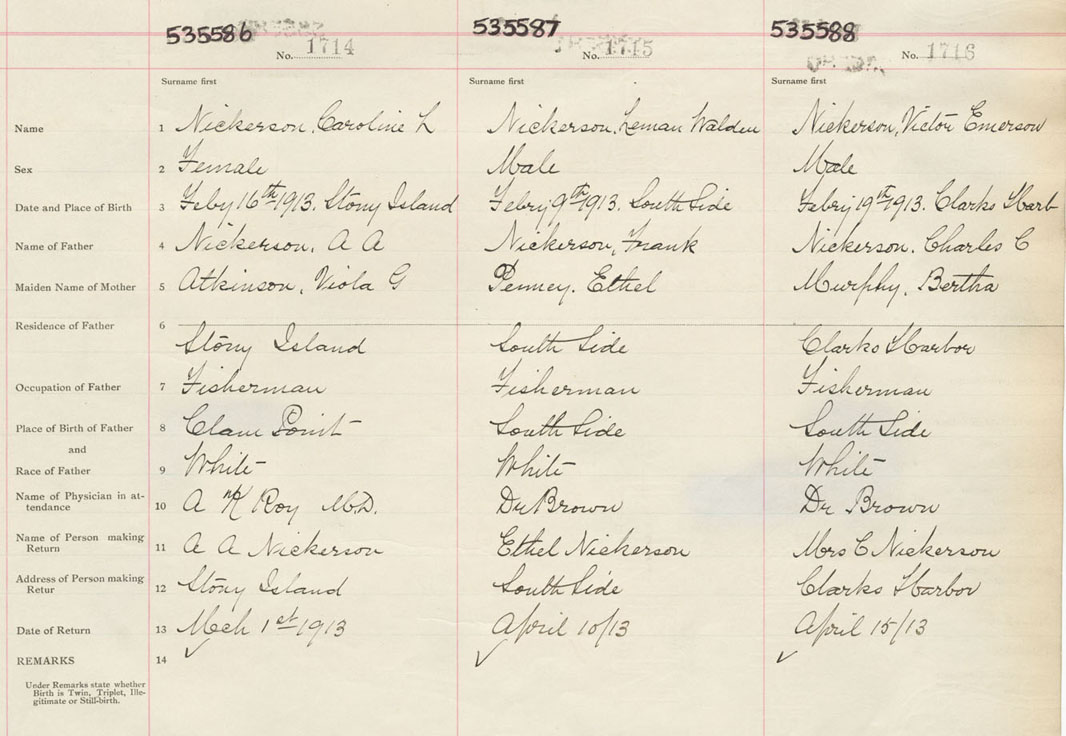 535586 535587 535588
No. 1714 No. 1715 No. 1716
Surname first Surname first Surname first
Name 1 Nickerson, Caroline L Nickerson, Leman Walden Nickerson, Victor Emerson
Sex 2 Female Male Male
Date and Place of Birth 3 Feby 16th 1913. Stony Island Febry 9th 1913. South Side Febry 19th 1913. Clarks Harb
Name of Father 4 Nickerson, A A Nickerson, Frank Nickerson. Charles C
Maiden Name of Mother 5 Atkinson, Viola G Penney. Ethel Murphy, Bertha
Residence of Father 6
Stony Island South Side Clarks Harbor
Occupation of Father 7 Fisherman Fisherman Fisherman
Place of Birth of Father 8 Clam Point South Side South Side
and
Race of Father 9 White White White
Name of Physician in at-
tendance 10 A K Roy M.D. Dr Brown Dr Brown
Name of Person making
Return 11 A A Nickerson Ethel Nickerson Mrs C Nickerson
Address of Person making
Retur 12 Stony Island South Side Clarks Harbor
Date of Return 13 Mch 1st 1913 April 10/13 April 15/13
REMARKS 14
Under Remarks state whether
Birth is Twin, Triplet, Ille-
gitimate or Still-birth.